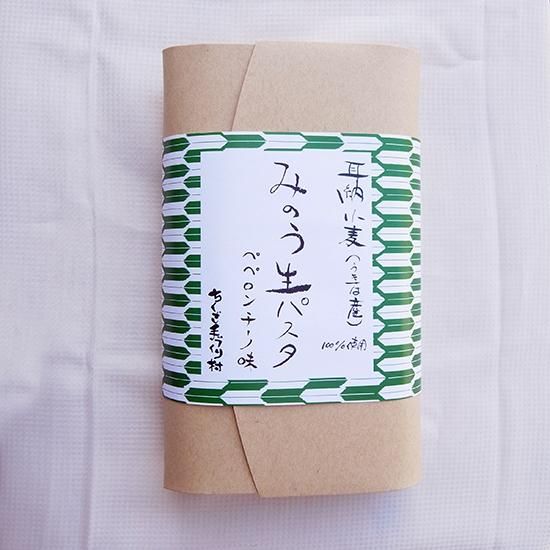 耳納小麦(うきは産)
100%使用
みのう生パスタ
ペペロンチーノ味
ちくご手づくり村